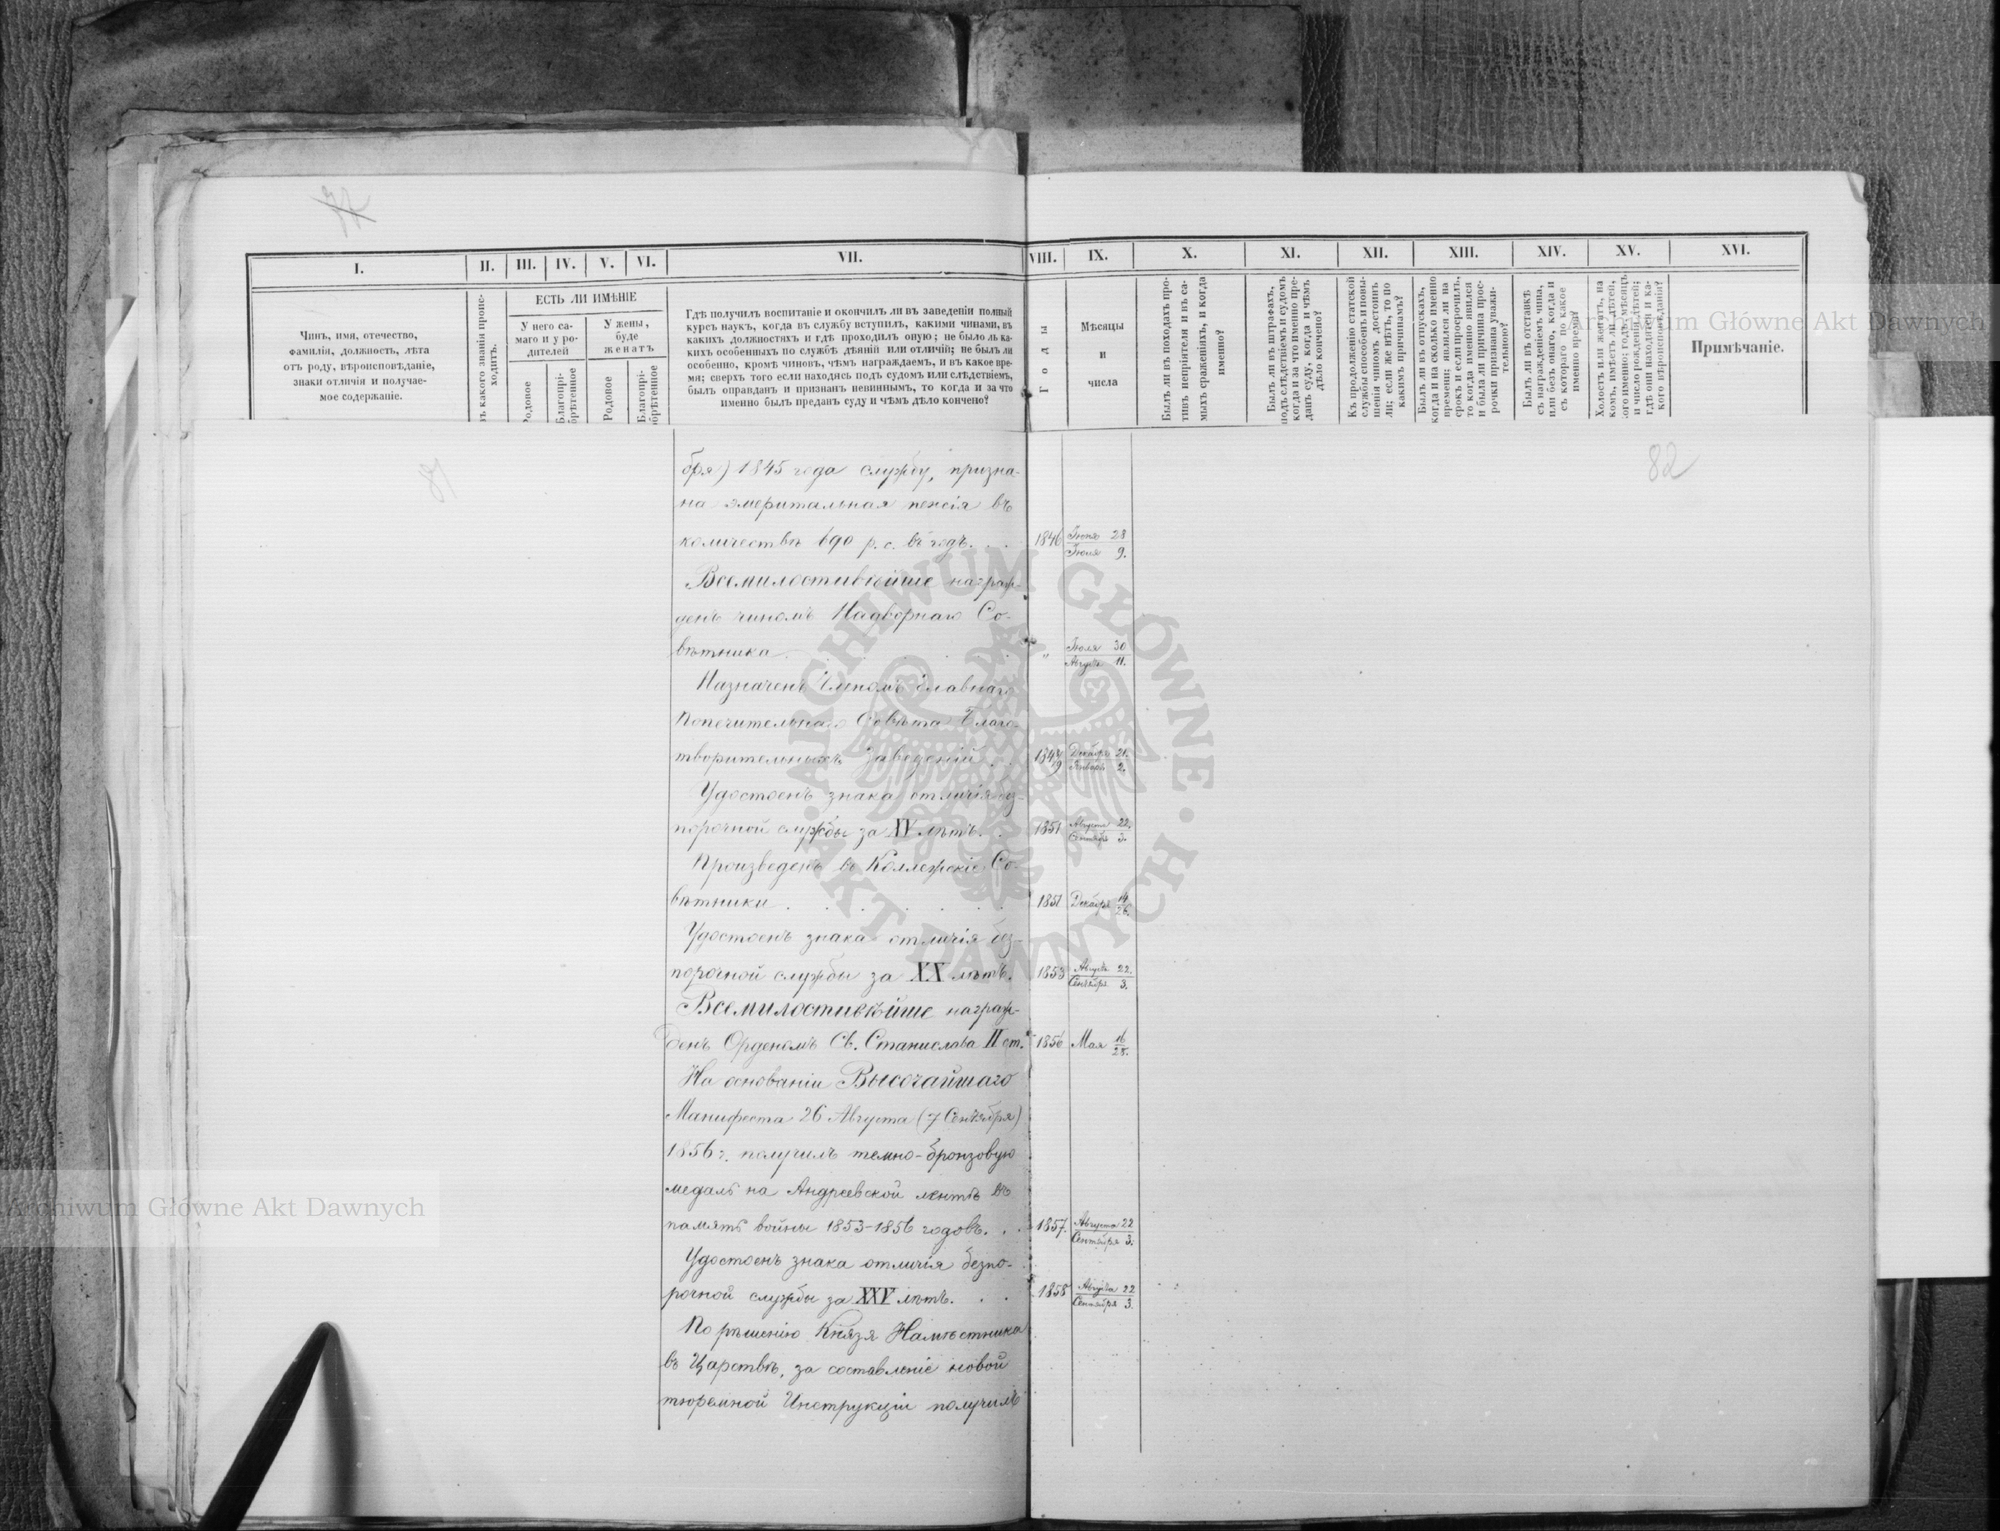 77
I. II. III. IV. V. VI. VII. VIII. IX. X. XI. XII. XIII. XIV. XV. XVI.
Чинъ, имя, отечество,
фамилія, должность, лѣта
отъ роду, вѣроисповѣданіе,
знаки отличія и получае-
мое содержаніе.
ъ какого званія проис-
ходитъ.
ЕСТЬ ЛИ ИМѢНІЕ
У него са-
маго и у ро-
дителей
У жены,
буде
женатъ
Родовое
Благопрі-
обрѣтенное
Родовое
Благопрі-
обрѣтенное
Гдѣ получилъ воспитаніе и окончилъ ли въ заведеніи полный
курсъ наукъ, когда въ службу вступилъ, какими чинами, въ
какихъ должностяхъ и гдѣ проходилъ оную; не было ль ка-
кихъ особенныхъ по службѣ дѣяній или отличій; не былъ ли
особенно, кромѣ чиновъ, чѣмъ награждаемъ, и въ какое вре-
мя; сверхъ того если находясь подъ судомъ или слѣдствіемъ,
былъ оправданъ и признанъ невиннымъ, то когда и за что
именно былъ преданъ суду и чѣмъ дѣло кончено?
Годы
Мѣсяцы
и
числа
Былъ ли въ походахъ про-
тивъ непріятеля и въ са-
мыхъ сраженіяхъ, и когда
именно?
Былъ ли въ штрафахъ,
подъ слѣдствіемъ и судомъ
когда и за что именно пре-
данъ суду, когда и чѣмъ
дѣло кончено?
Къ продолженію статской
службы способенъ и повы-
шенія чиномъ достоинъ
ли; если же нѣтъ, то по
какимъ причинамъ?
Былъ ли въ отпускахъ,
когда и на сколько именно
времени; являлся ли на
срокъ и если просрочилъ,
то когда именно явился
и была ли причина прос-
рочки признана уважи-
тельною?
Былъ ли въ отставкѣ
съ награжденіемъ чина,
или безъ онаго, когда и
съ котораго по какое
именно время?
Холостъ или женатъ, на
комъ, имѣетъ ли дѣтей,
кого именно; годъ, мѣсяцъ
и число рожденія дѣтей;
гдѣ они находятся и ка-
кого вѣроисповѣданія?
Примѣчаніе.
81
82
бря) 1845 года службу, призна-
на эмеритальная пенсія въ
количествѣ 690 р. с. въ годъ. . . 1846 Іюня 28
Іюля 9.
Всемилостивѣйше награж-
денъ чиномъ Надворнаго Со-
вѣтника . . . . . " Іюля 30
Августа 11.
Назначенъ Членомъ Главнаго
Попечительнаго Совѣта Благо-
творительныхъ Заведеній . . Декабря 21.
Января 2.
Удостоенъ знака отличія без-
порочной службы за XV лѣтъ. . 1851 Августа 22.
Сентября 3.
Произведенъ въ Коллежскіе Со-
вѣтники . . . . . . 1851 Декабря 14
26.
Удостоенъ знака отличія без-
порочной службы за XX лѣтъ. 1853 Августа 22.
Сентября 3.
Всемилостивѣйше награж-
денъ Орденомъ Св. Станислава II ст. 1856 Мая 16
28.
На основаніи Высочайшаго
Манифеста 26 Августа (7 Сентября)
1856 г. получилъ темно-бронзовую
медаль на Андреевской лентѣ въ
память войны 1853-1856 годовъ. . . 1857. Августа 22
Сентября 3.
Удостоенъ знака отличія безпо-
рочной службы за XXV лѣтъ. . . 1858 Августа 22
Сентября 3.
По рѣшенію Князя Намѣстника
въ Царствѣ, за составленіе новой
тюремной Инструкціи получилъ
ARCHIWUM GŁÓWNE AKT DAWNYCH
Archiwum Główne Akt Dawnych
Archiwum Główne Akt Dawnych